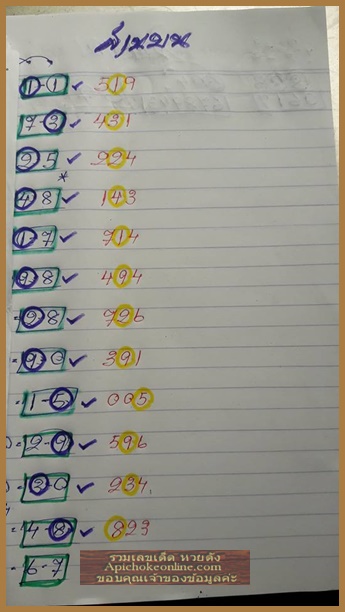 ล่างบน
1-1 ✓ 319
73 ✓ 431
25 ✓ 924
*
48 ✓ 143
1-7 ✓ 714
98 ✓ 494
=98 ✓ 796
=90 ✓ 391
=1-5 ✓ 005
=2-9 ✓ 596
=30 ✓ 934
=48 ✓ 823
=6-7
รวมเลขเด็ด หวยดัง
Apichokeonline.com
ขอบคุณเจ้าของข้อมูลค่ะ